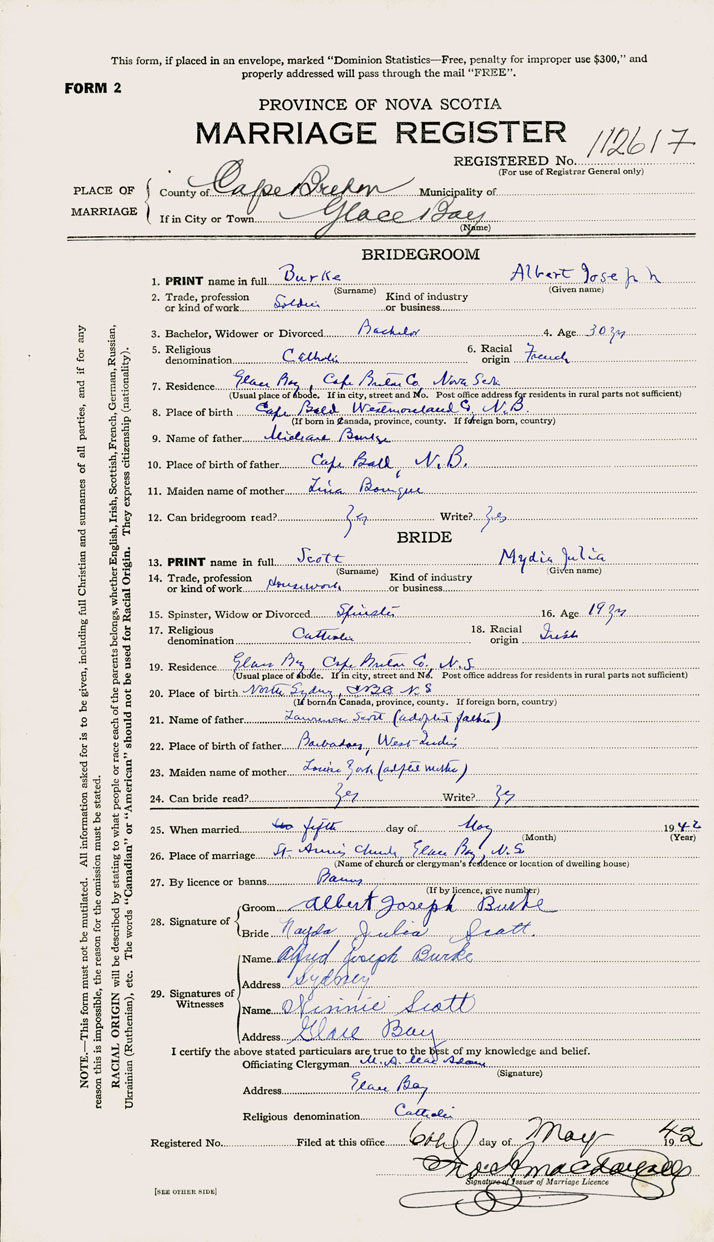 This form, if placed in an envelope, marked "Dominion Statistics—Free, penalty for improper use $300," and
properly addressed will pass through the mail "FREE".
FORM 2
PROVINCE OF NOVA SCOTIA
MARRIAGE REGISTER
REGISTERED No. 112617
(For use of Registrar General only)
PLACE OF MARRIAGE
County of Cape Breton Municipality of
If in City or Town Glace Bay
(Name)
BRIDEGROOM
1. PRINT name in full Burke Albert Joseph
(Surname) (Given name)
2. Trade, profession or kind of work Soldier Kind of industry or business
3. Bachelor, Widower or Divorced Bachelor 4. Age 30 yrs
5. Religious denomination Catholic 6. Racial origin French
7. Residence Glace Bay, Cape Breton Co, Nova Scotia
(Usual place of abode. If in city, street and No. Post office address for residents in rural parts not sufficient)
8. Place of birth Cape Bald Westmoreland Co, N.B.
(If born in Canada, province, county. If foreign born, country)
9. Name of father Burke
10. Place of birth of father Cape Bald, N.B.
11. Maiden name of mother
12. Can bridegroom read? Yes Write? Yes
BRIDE
13. PRINT name in full Scott Mydia Julia
(Surname) (Given name)
14. Trade, profession or kind of work Housework Kind of industry or business
15. Spinster, Widow or Divorced Spinster 16. Age 19 yrs
17. Religious denomination Catholic 18. Racial origin Irish
19. Residence Glace Bay, Cape Breton Co, N.S.
(Usual place of abode. If in city, street and No. Post office address for residents in rural parts not sufficient)
20. Place of birth North Sydney, N.S
(If born in Canada, province, county. If foreign born, country)
21. Name of father Lawrence Scott (adopted father)
22. Place of birth of father Barbados, West Indies
23. Maiden name of mother Louise York (adopted mother)
24. Can bride read? Yes Write? Yes
25. When married fifth day of May 1942
(Month) (Year)
26. Place of marriage St. Ann's Church, Glace Bay, N.S
(Name of church or clergyman's residence or location of dwelling house)
27. By licence or banns Banns
(If by licence, give number)
28. Signature of
Groom Albert Joseph Burke
Bride Nayda Julia Scott.
29. Signatures of Witnesses
Name Alfred Joseph Burke
Address Sydney
Name Winnie Scott
Address Glace Bay
I certify the above stated particulars are true to the best of my knowledge and belief.
Officiating Clergyman M. A. Mac Adam
(Signature)
Address Glace Bay
Religious denomination Catholic
Registered No. Filed at this office 6th day of May 1942
Signature of Issuer of Marriage Licence
[SEE OTHER SIDE]
NOTE.—This form must not be mutilated. All information asked for is to be given, including full Christian and surnames of all parties, and if for any
reason this is impossible, the reason for the omission must be stated.
RACIAL ORIGIN will be described by stating to what people or race each of the parents belongs, whether English, Irish, Scottish, French, German, Russian,
Ukrainian (Ruthenian), etc. The words "Canadian" or "American" should not be used for Racial Origin. They express citizenship (nationality).